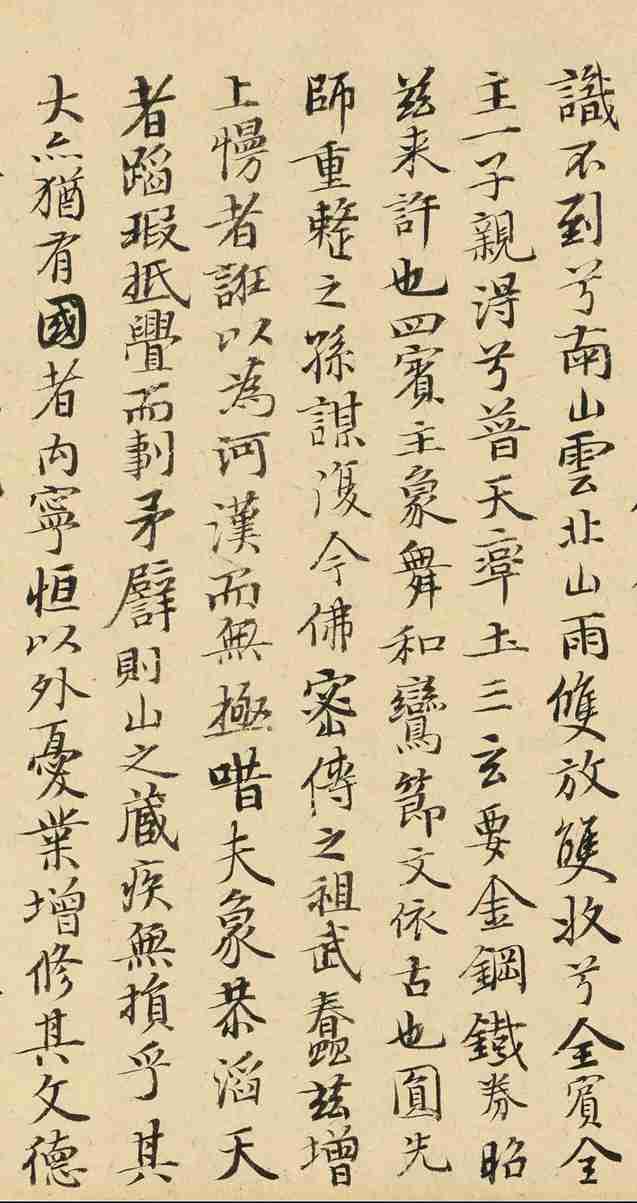 識不到兮南山雲北山雨雙放雙收兮全賓全
主一子親得兮普天率土三玄要金鋼鐵券昭
茲来許也四賓主象舞和鸞節文依古也圓先
師重整之孫謀復今佛密傳之祖武蠢茲增
上慢者誑以為河漢而無極唶夫象恭滔天
者蹈瑕抵舋而剚矛譬則山之藏疾無損乎其
大亦猶有國者內寧恒以外憂業增修其文德